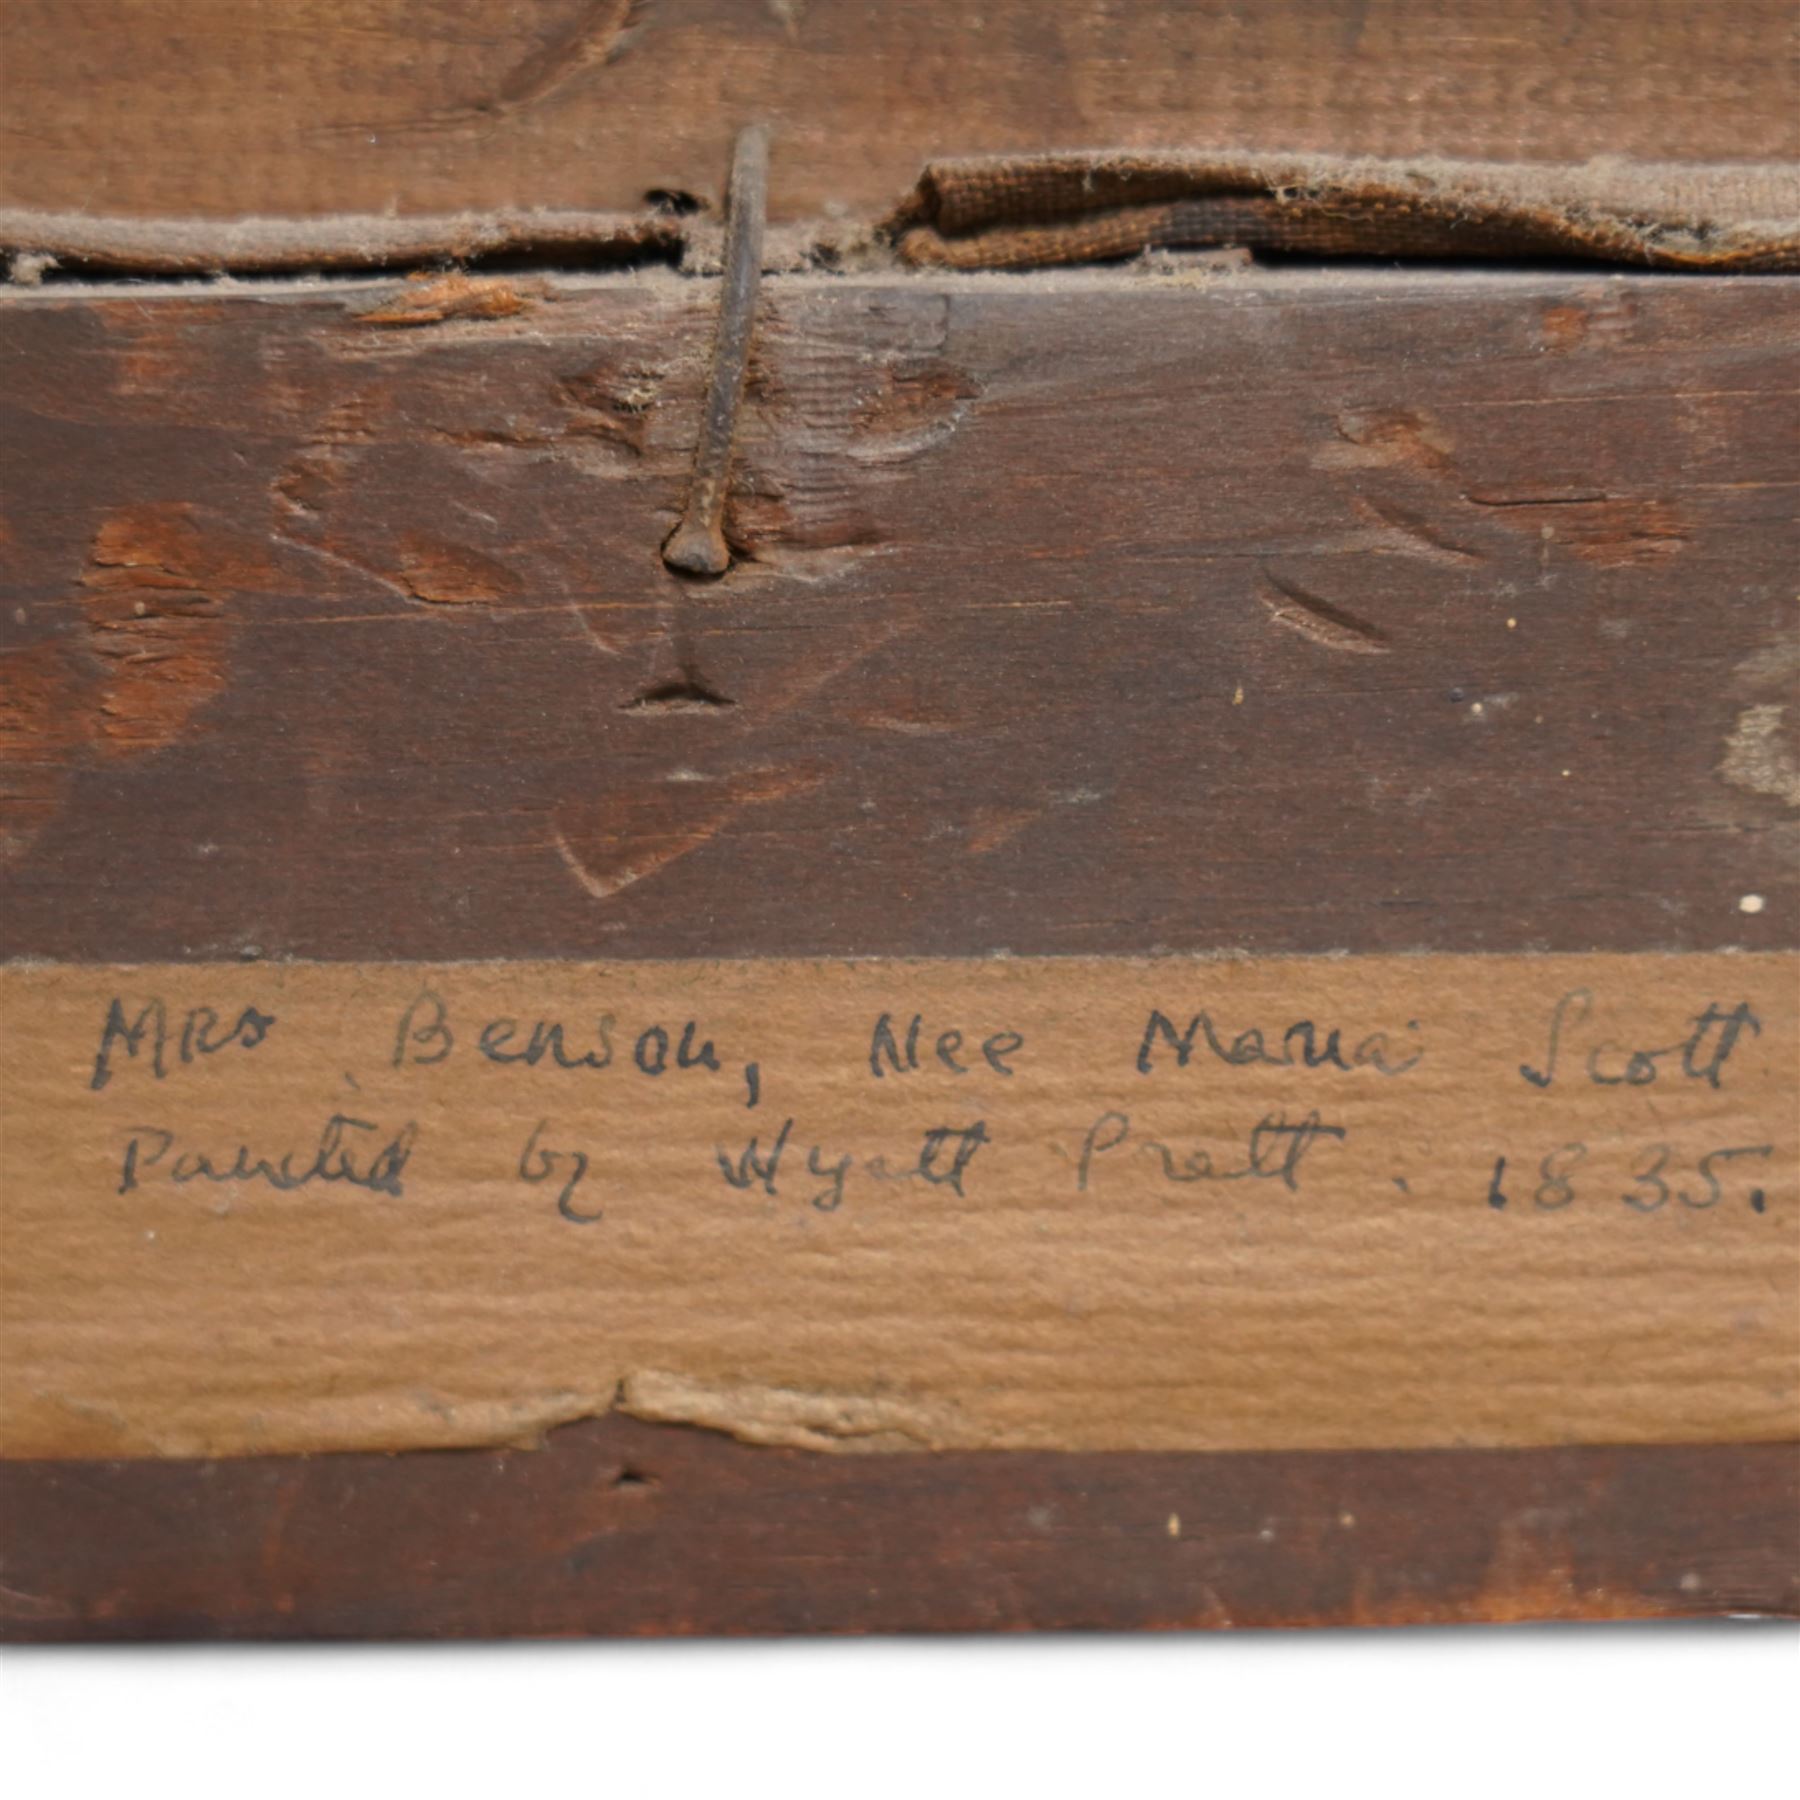 Mrs Benson, Nee Maria Scott
Painted by Hyatt Pratt. 1835.